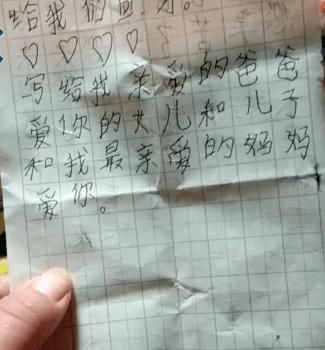 给我们
♡♡♡♡
写给我亲爱的爸爸
爱你的女儿和儿子
和我最亲爱的妈妈
爱你。